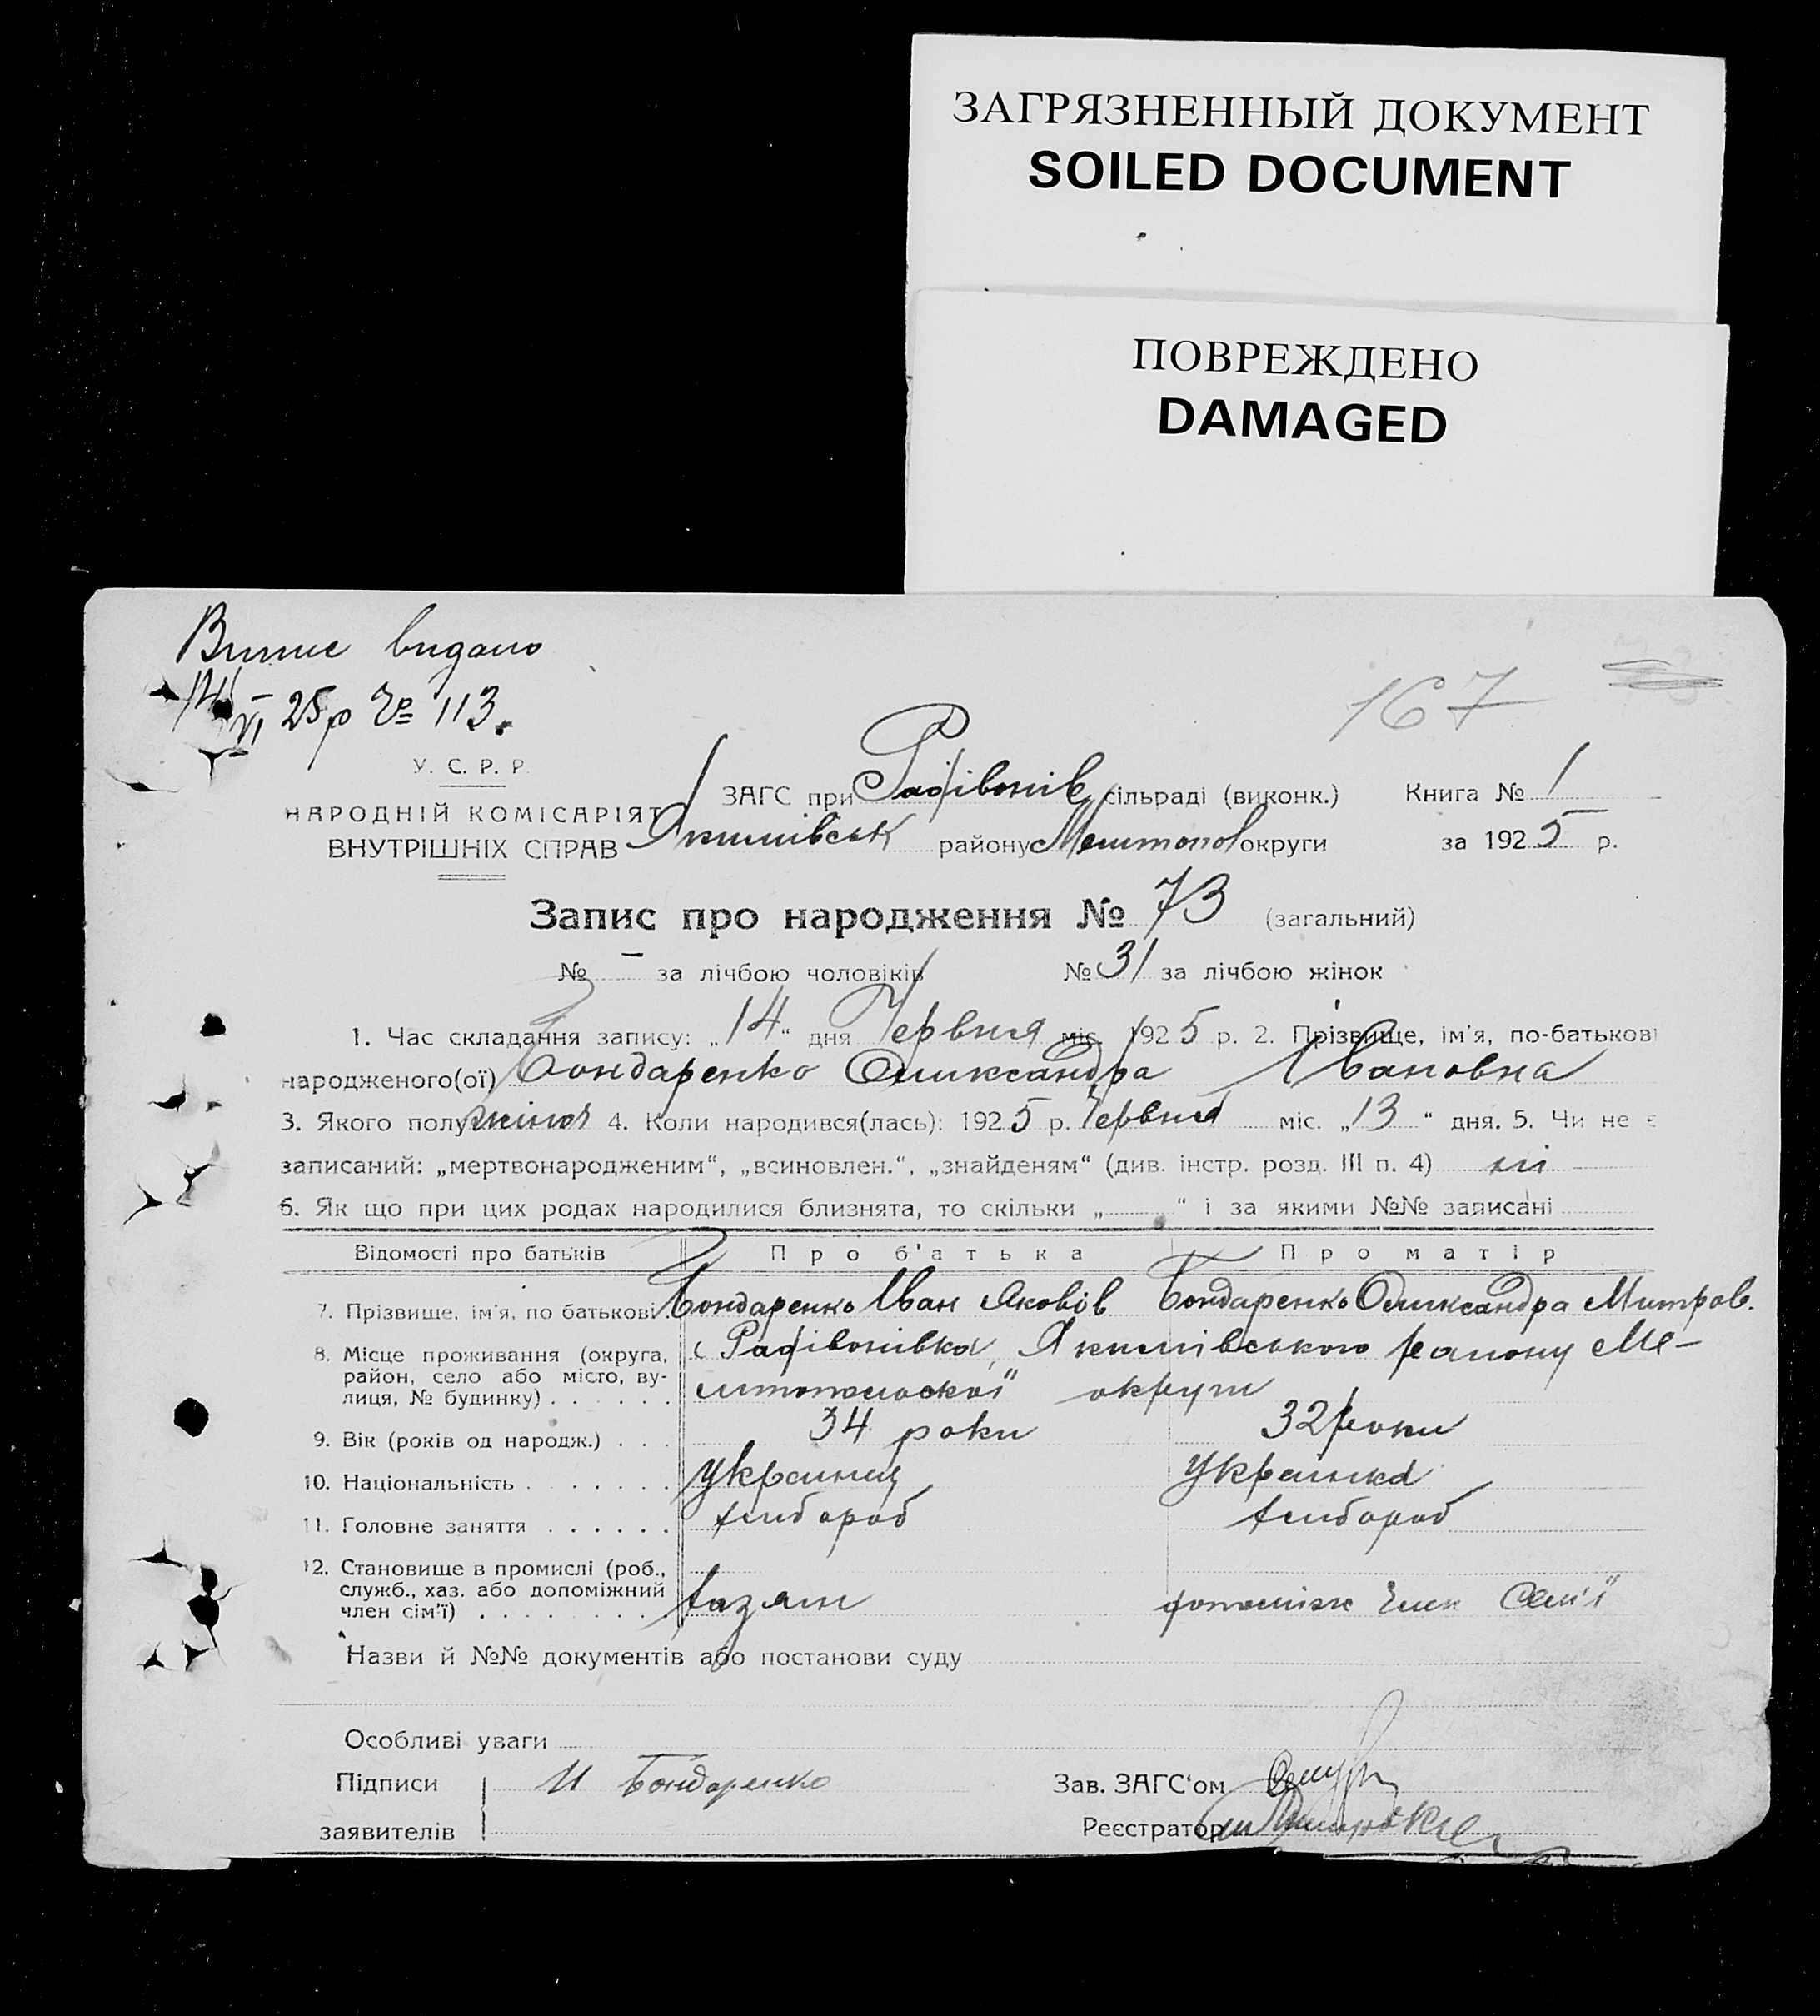 ЗАГРЯЗНЕННЫЙ ДОКУМЕНТ
SOILED DOCUMENT
ПОВРЕЖДЕНО
DAMAGED
Витис видано
14/VI 25р № 113.
167
У. С. Р. Р.
НАРОДНІЙ КОМІСАРІЯТ
ВНУТРІШНІХ СПРАВ
ЗАГС при Радівонів сільраді (виконк.) Книга № 1
Якимівськ району Мелитопол округи за 1925 р.
Запис про народження № 73 (загальний)
№ – за лічбою чоловіків № 31 за лічбою жінок
1. Час складання запису: „14“ дня Червня міс. 1925 р. 2. Прізвище, ім'я, по-батькові
народженого(ої) Бондаренко Олиександра Івановна
3. Якого полу жіноч 4. Коли народився(лась): 1925 р. Червня міс. „13“ дня. 5. Чи не є
записаний: „мертвонародженим“, „всиновлен.“, „знайденям“ (див. інстр. розд. III п. 4) ні
6. Як що при цих родах народилися близнята, то скільки „ “ і за якими №№ записані
Відомості про батьків Про б'атька Про матір
7. Прізвище, ім'я, по батькові. Бондаренко Іван Яковів Бондаренко Олиександра Митров.
8. Місце проживання (округа, район, село або місто, вулиця, № будинку) с Радівонівка, Якимівського району Ме-
литопольської округи
9. Вік (років од народж.) 34 роки 32 роки
10. Національність украинец украинка
11. Головне заняття хлібороб хлібороб
12. Становище в промислі (роб.,
служб., хаз. або допоміжний
член сім'ї) хазяин допоміжн член сем'ї
Назви й №№ документів або постанови суду
Особливі уваги
Підписи И Бондаренко Зав. ЗАГС'ом
заявителів Реєстратор